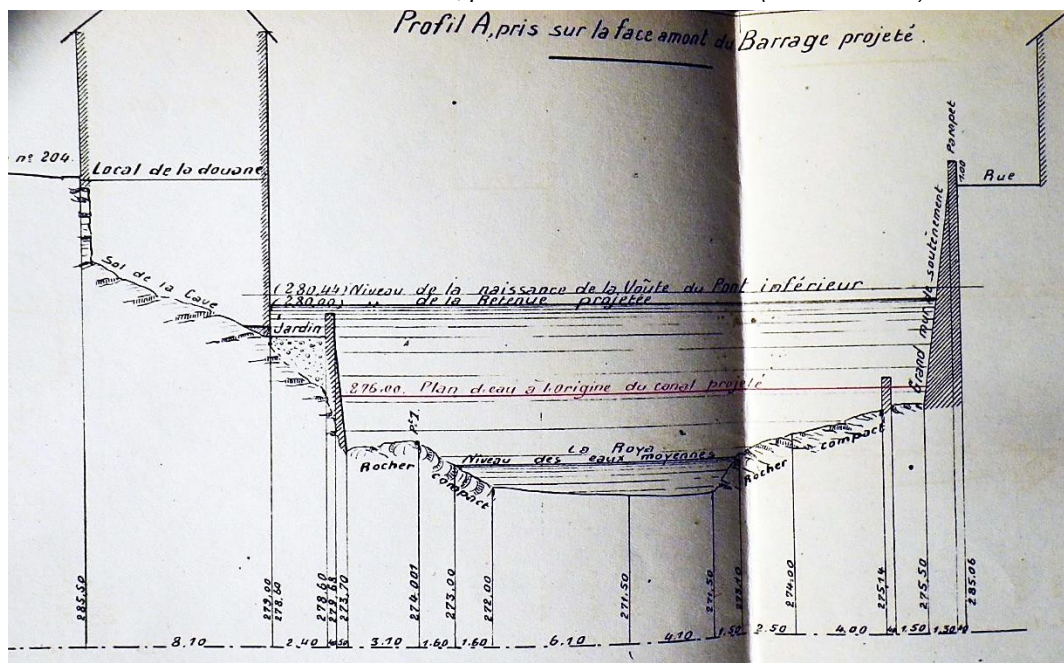 Profil A, pris sur la face amont du Barrage projeté.
nº 204.
Local de la douane
Rue
Parapet
1.00
Grand mur de soutènement
Sol de la Cave
(280.44) Niveau de la naissance de la Voûte du Pont inférieur
(280.00) " de la Retenue projetée
Jardin
276.00. Plan d'eau à l'origine du canal projeté
La Roya
Niveau des eaux moyennes
Rocher compact
Rocher compact
285.50
279.00
278.60
278.60
273.70
274.001
273.00
272.00
271.50
271.50
274.00
275.14
275.50
285.06
8.10
2.40
3.10
1.60
1.60
6.10
4.10
1.50
2.50
4.00
1.50
1.30